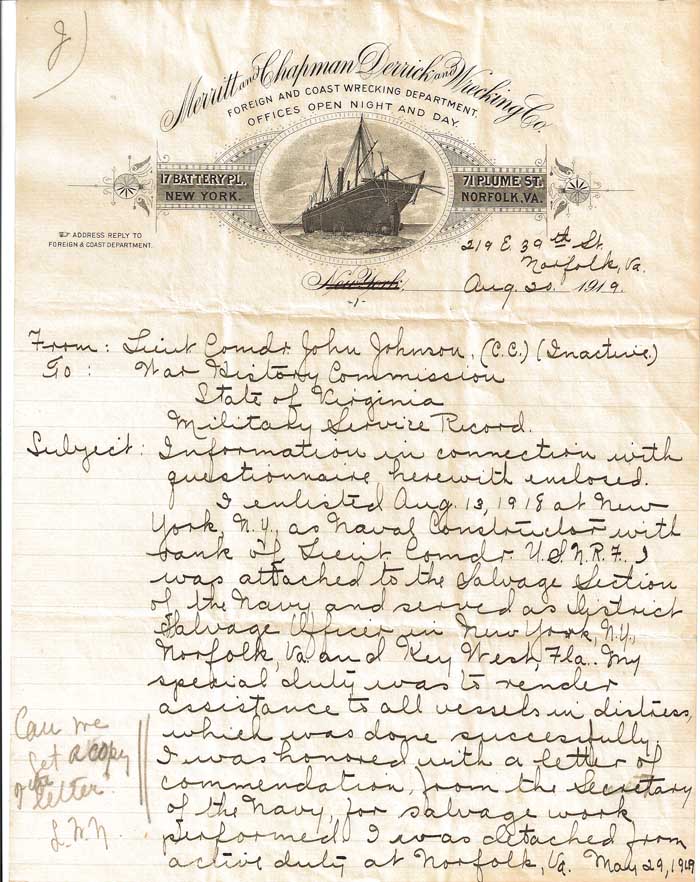 J)
Merritt and Chapman Derrick and Wrecking Co.
FOREIGN AND COAST WRECKING DEPARTMENT.
OFFICES OPEN NIGHT AND DAY.
17 BATTERY PL.
NEW YORK.
71 PLUME ST.
NORFOLK, VA.
ADDRESS REPLY TO
FOREIGN & COAST DEPARTMENT.
219 E. 39th St.
Norfolk, Va.
New York, Aug. 20. 1919.
-1-
From: Lieut Comdr John Johnson, (C.C.) (Inactive.)
To: War History Commission
State of Virginia
Military Service Record.
Subject: Information in connection with
questionnaire herewith enclosed.
I enlisted Aug. 13, 1918 at New
York, N.Y., as Naval Constructor with
rank of Lieut Comdr U.S.N.R.F. I
was attached to the Salvage Section
of the Navy and served as District
Salvage Officer in New York, N.Y.,
Norfolk, Va. and Key West, Fla.. My
special duty was to render
assistance to all vessels in distress
which was done succesfully.
I was honored with a letter of
commendation, from the Secretary
of the Navy, for salvage work
performed. I was detached from
active duty at Norfolk, Va. May 29, 1919
Can we
get a copy
of
letter